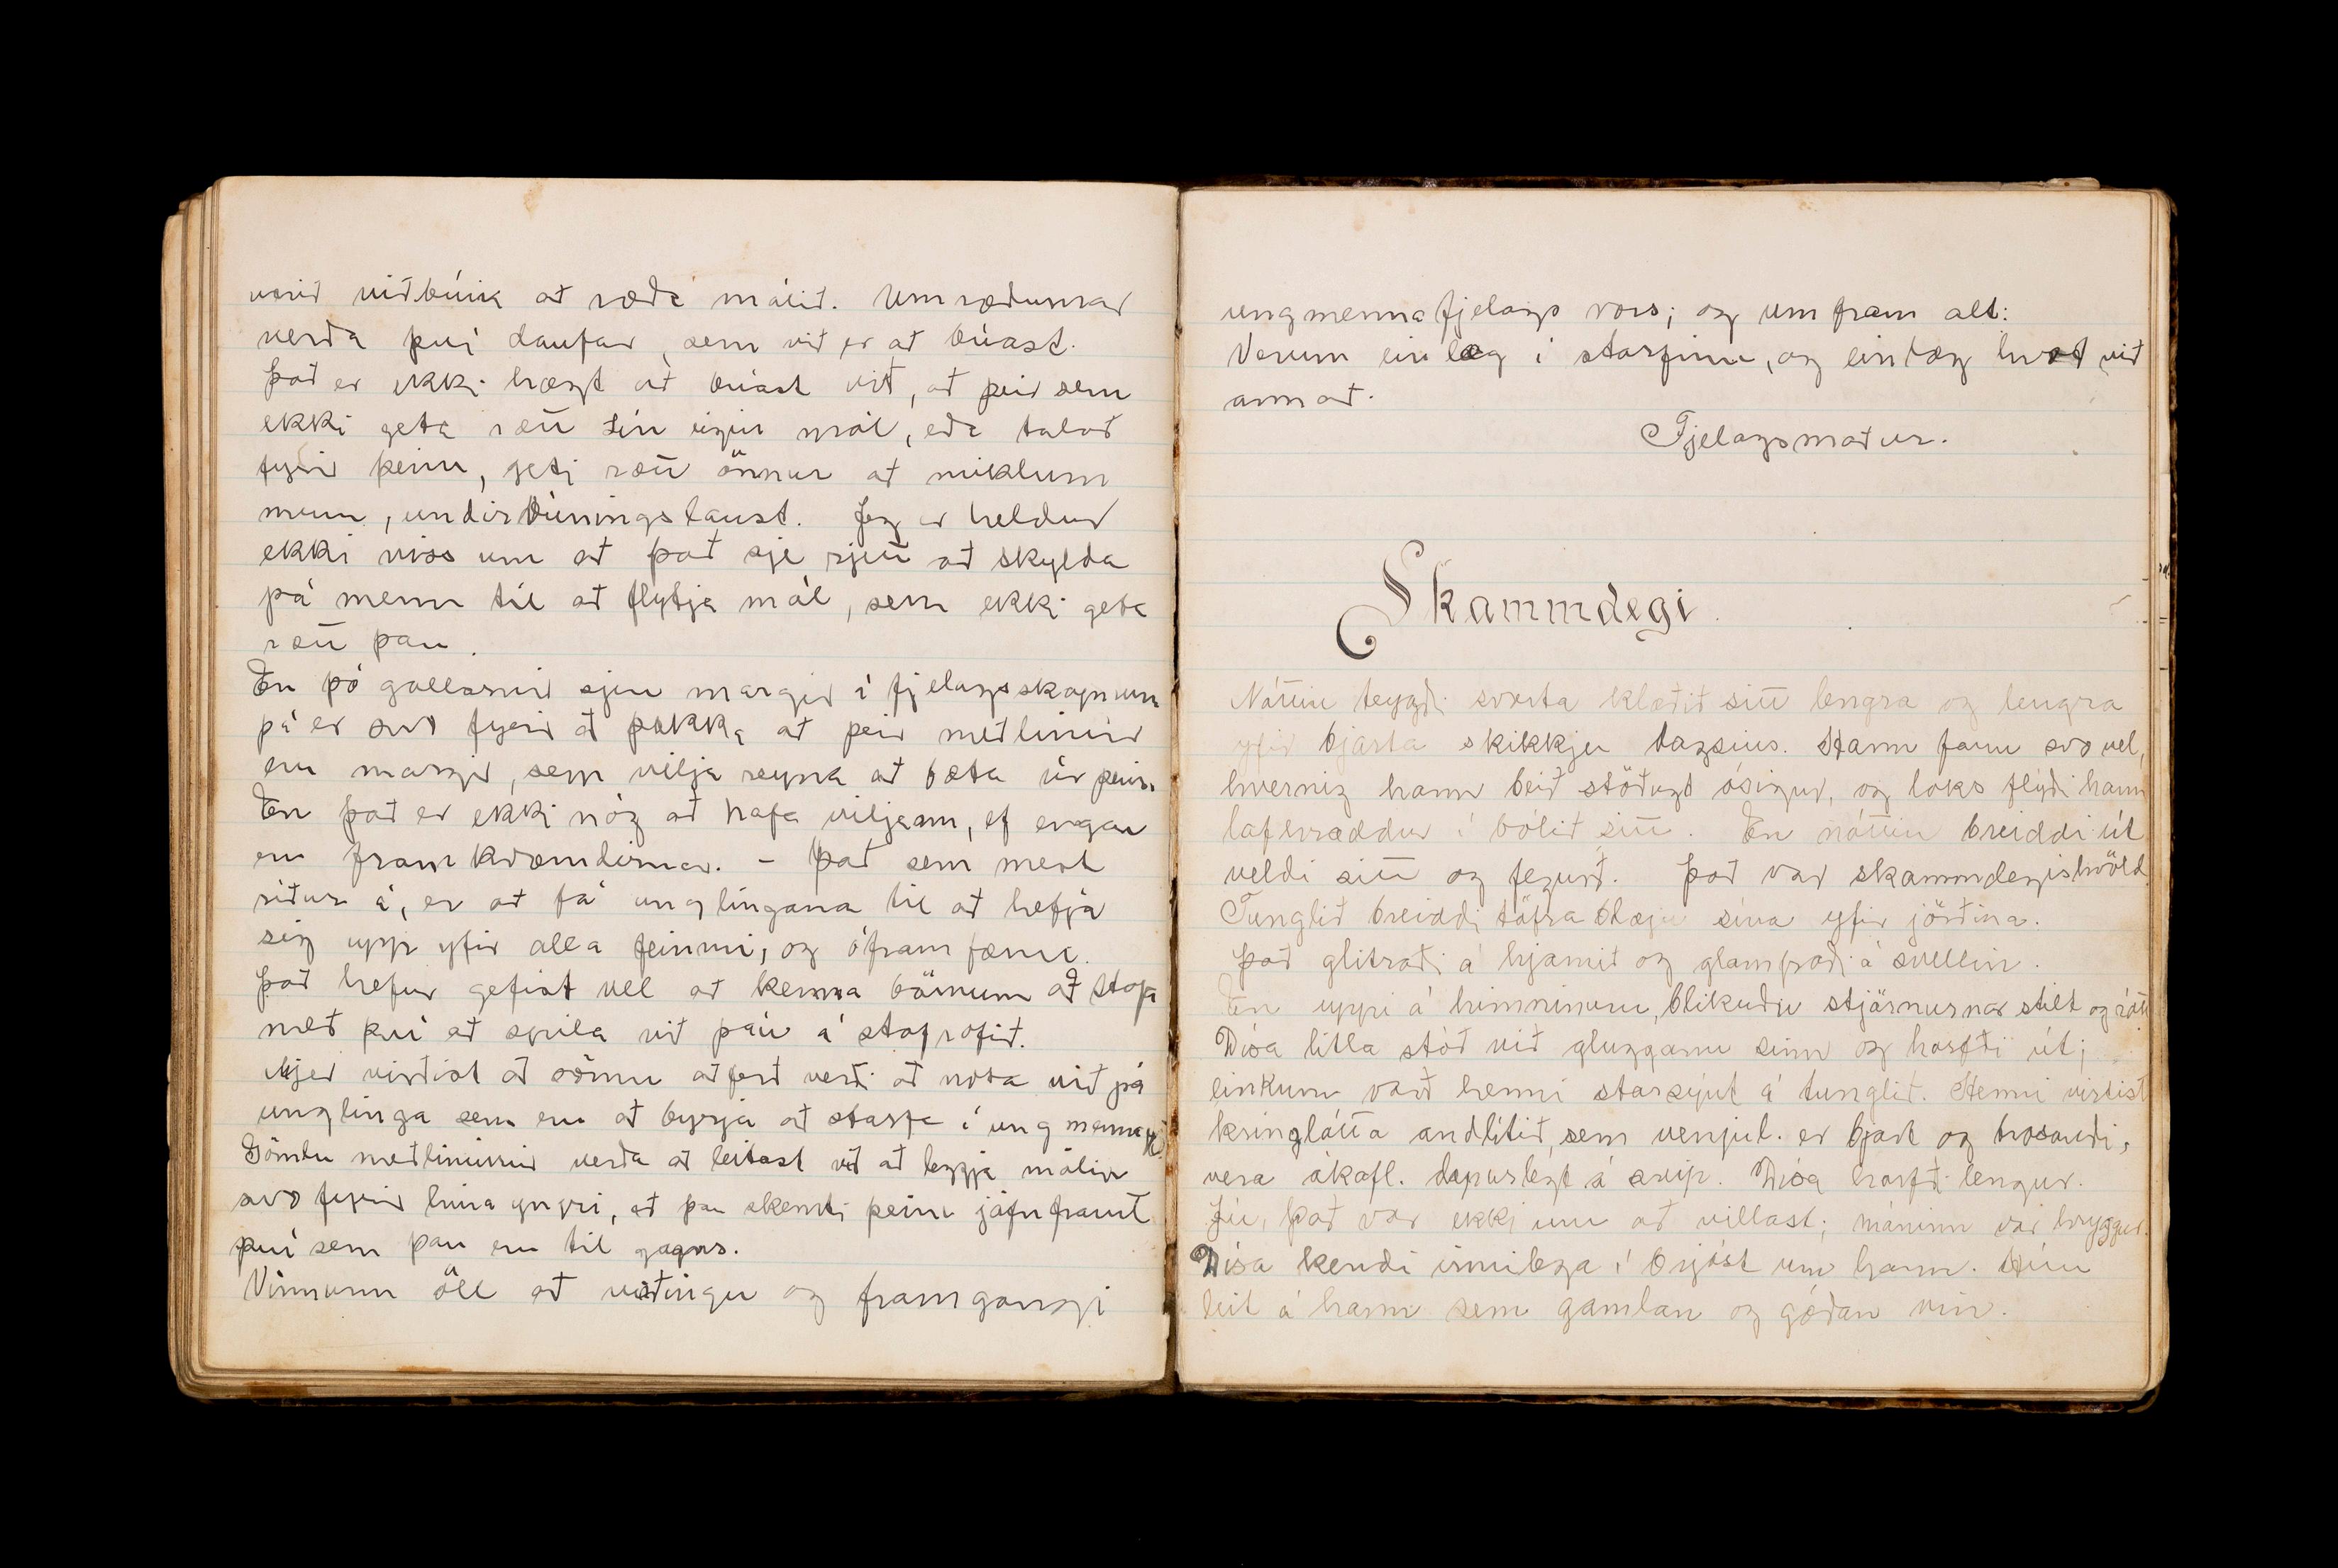 verið viðbúin að ræða málið. Umræðurnar
verða því daufar, sem við er að búast.
Það er ekki hægt að búast við, að þeir sem
ekki geta rætt sín eigin mál, eða talað
fyrir þeim, geti rætt önnur að miklum
mun, undirbúningslaust. Jeg er heldur
ekki viss um að það sje rjett að skylda
þá menn til að flytja mál, sem ekki geta
rætt þau.
En þó gallarnir sjeu margir í fjelagsskapnum
þá er svo fyrir að þakka að þeir meðlimir
eru margir, sem vilja reyna að bæta úr þeim.
En það er ekki nóg að hafa viljann, ef engar
eru framkvæmdirnar. - Það sem mest
ríður á, er að fá unglingana til að hefja
sig upp yfir alla feimni, og óframfærni.
Það hefur gefist vel að kenna börnum að stafa
með því að spila við þau á stafrófið.
Mjer virðist að sömu aðferð verði að nota við þá
unglinga sem eru að byrja að starfa í ungmennafj.
Gömlu meðlimirnir verða að leitast við að leggja málin
svo fyrir hina yngri, að þau skemti þeim jafnframt
því sem þau eru til gagns.
Vinnum öll að virðingu og framgangi
ungmennafjelags vors; og umfram alt:
Verum einlæg í starfinu, og einlæg hvert við
annað.
Fjelagsmaður.
Skammdegi.
Nóttin teygði svarta klæðið sitt lengra og lengra
yfir bjarta skikkju dagsins. Hann fann svo vel,
hvernig hann beið stöðugt ósigur, og loks flýði hann
lafhræddur í bólið sitt. En nóttin breiddi út
veldi sitt og fegurð. Það var skammdegiskvöld.
Tunglið breiddi töfrablæju sína yfir jörðina.
Það glitraði á hjarnið og glampaði á svellin.
En uppi á himninum, blikuðu stjörnurnar stilt og rótt
Dísa litla stóð við gluggann sinn og horfði út;
einkum varð henni starsýnt á tunglið. Henni virtist
kringlótta andlitið, sem venjul. er bjart og brosandi,
vera ákafl. dapurlegt á svip. Dísa horfði lengur.
Jú, það var ekki um að villast; máninn var hryggur.
Dísa kendi innilega í brjóst um hann. Hún
leit á hann sem gamlan og góðan vin.